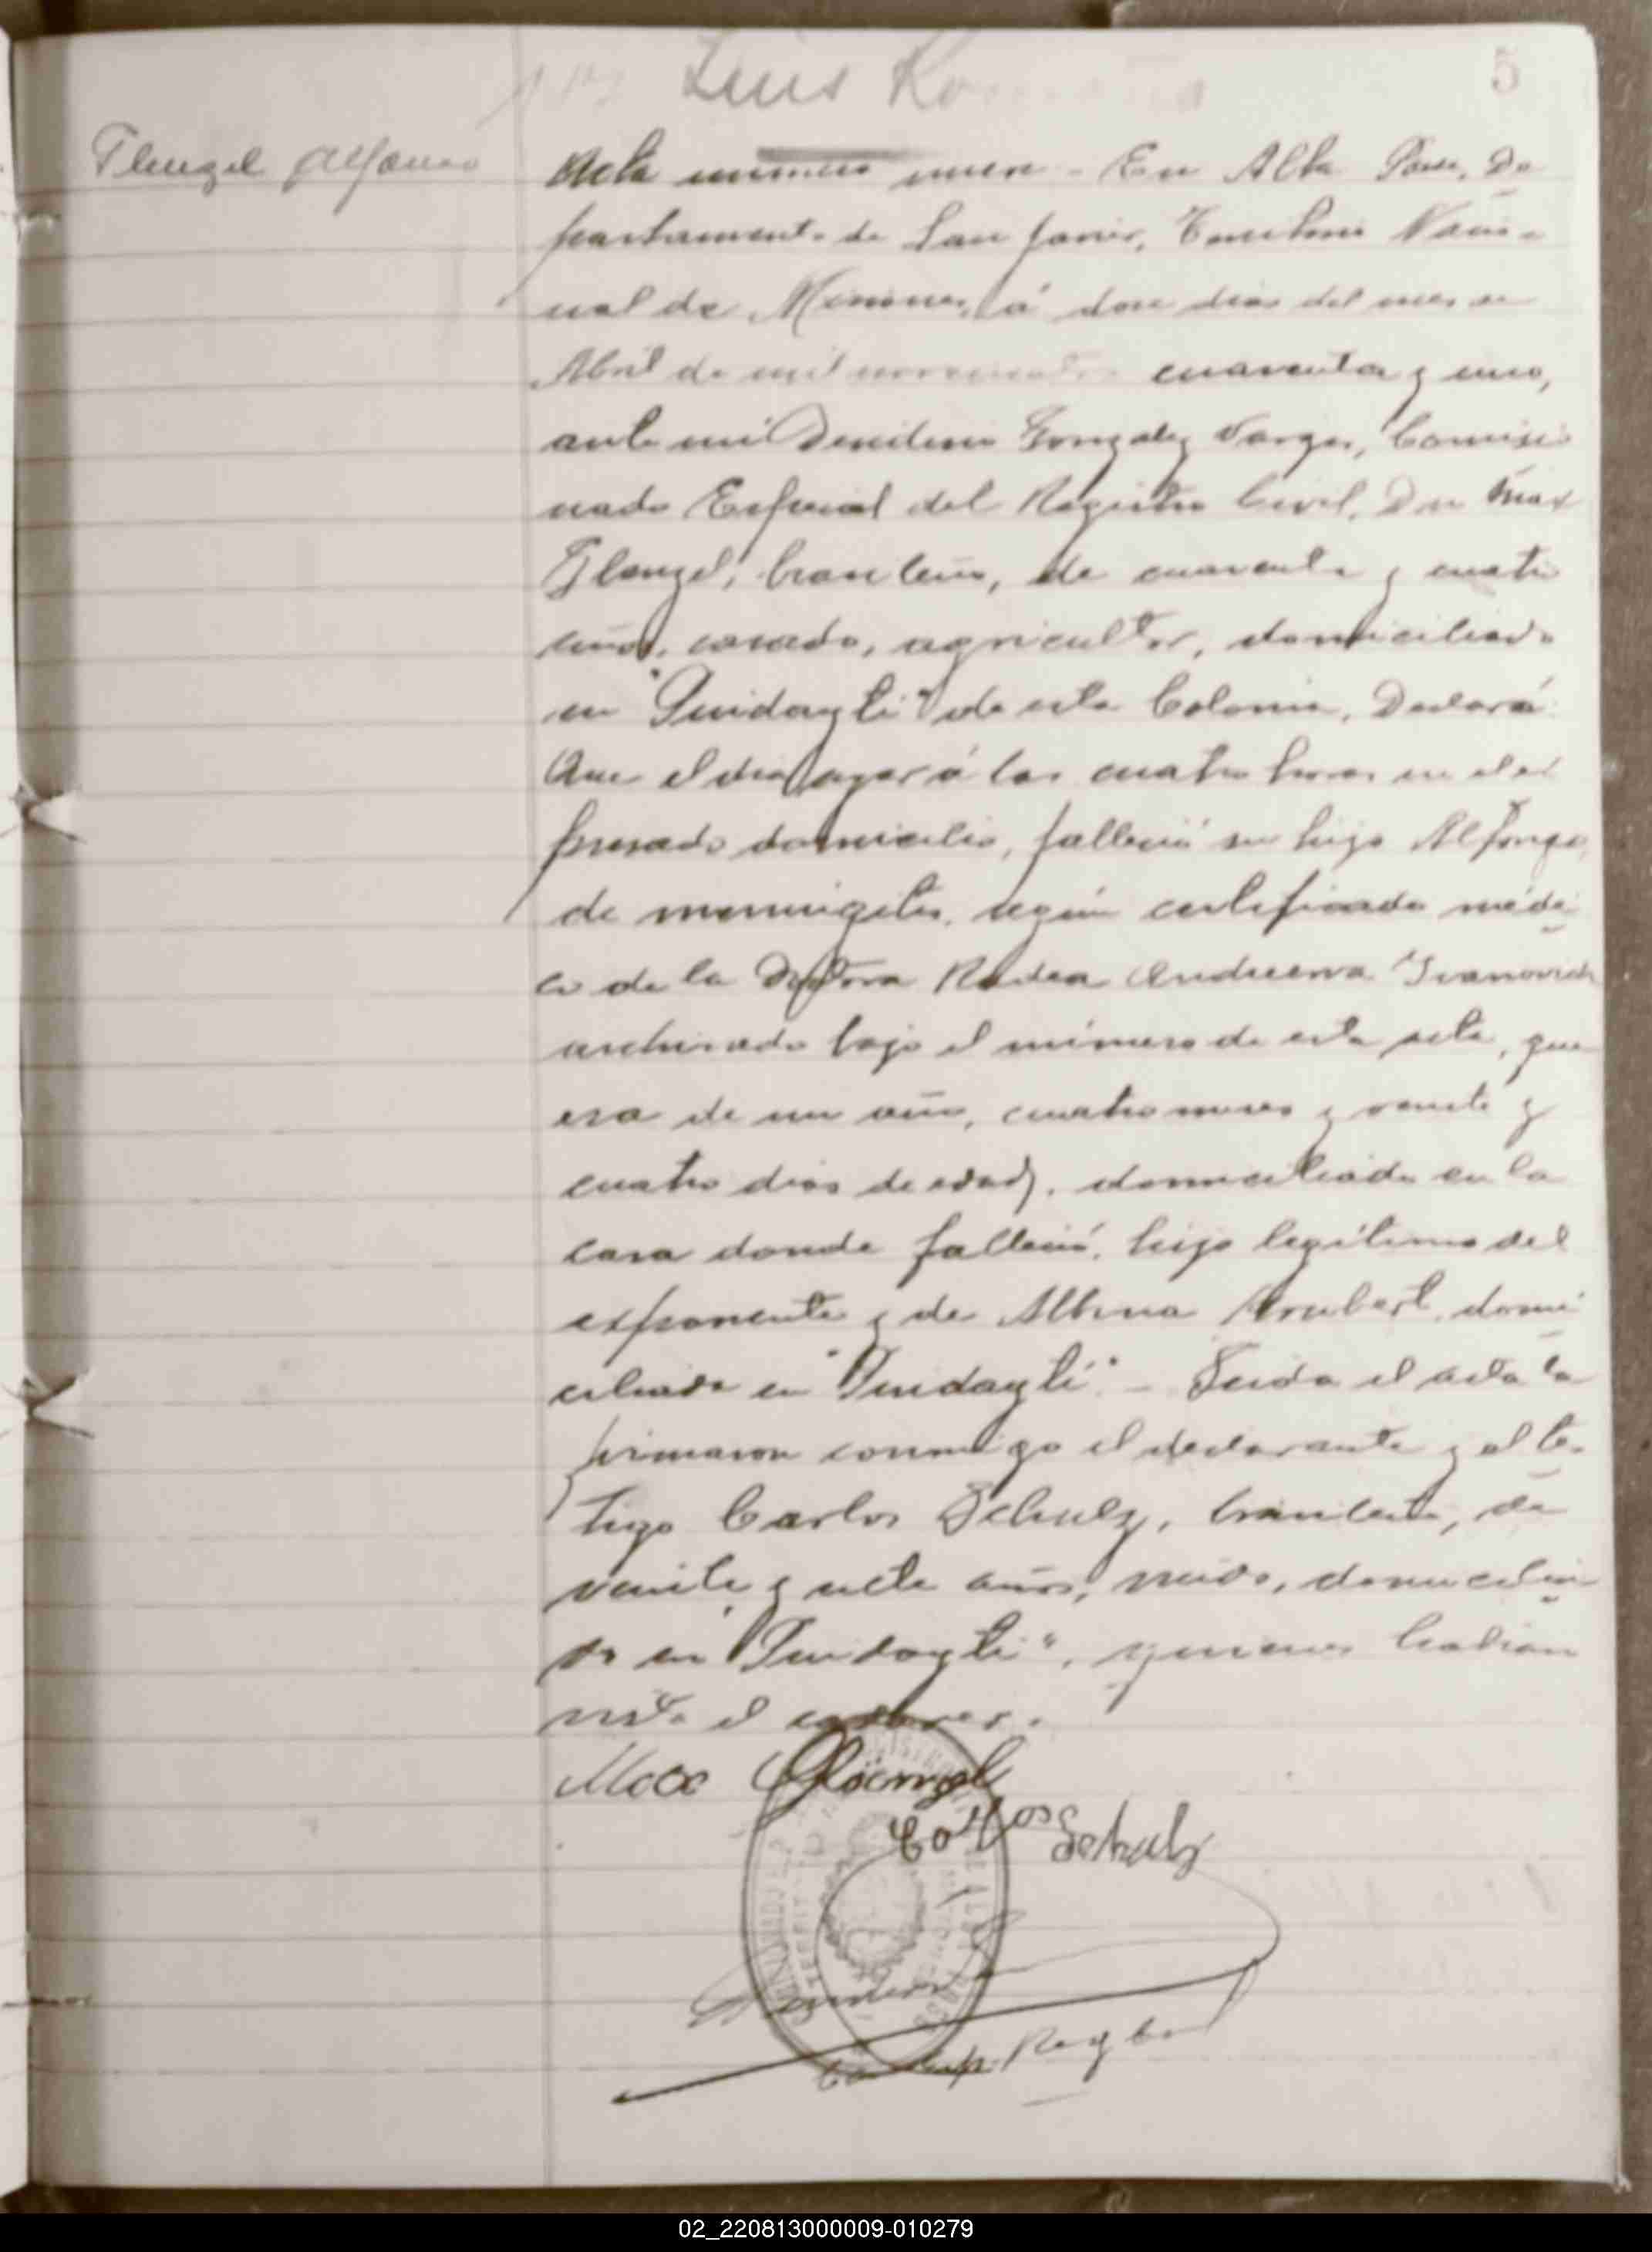 Luis
5
Flengel Alfonso
Acta número nueve - En Alba Posse, De
partamento de San Javier, Territorio Nacio-
nal de Misiones, á doce dias del mes de
Abril de mil novecientos cuarenta y uno,
ante mi Gonzalez Vargas, Comisio
nado Especial del Registro Civil, Don Max
Flengel, brasileño, de cuarenta y cuatro
años, casado, agricultor, domiciliado
en "Pindayti" de esta Colonia, Declaró:
Que el dia ayer á las cuatro horas en el ex
presado domicilio, falleció su hijo Alfonso,
de meningitis, según certificado médi
co de la Doctora Andreewa Ivanovich
archivado bajo el número de esta acta, que
era de un año, cuatro meses y veinte y
cuatro dias de edad, domiciliado en la
casa donde falleció, hijo legítimo del
exponente y de Albina domi
ciliada en "Pindayti". - Leida el acta la
firmaron conmigo el declarante y el tes-
tigo Carlos Schulz, brasileño, de
veinte y siete años, domicilia
do en "Pindayti", quienes habian
visto el cadaver.
Max
Carlos Schulz